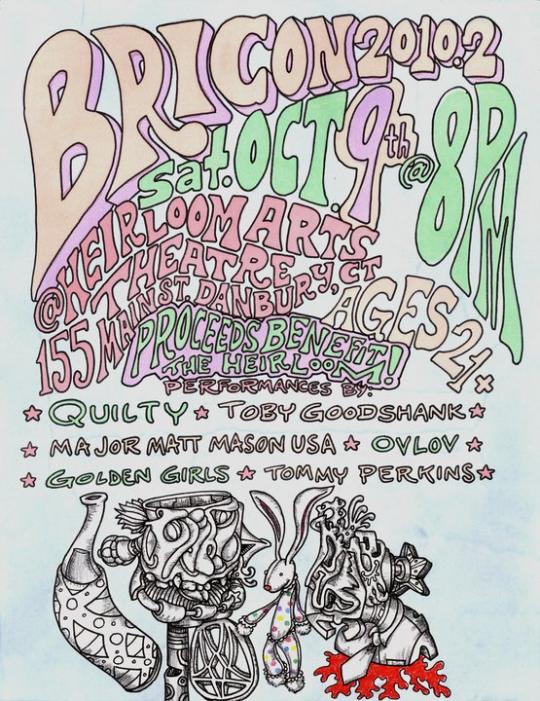 BRICON 2010.2
Sat. OCT. 9th @ 8PM
@HEIRLOOM ARTS
THEATRE
155 MAIN ST DANBURY, CT
AGES 21+
PROCEEDS BENEFIT
THE HEIRLOOM!
PERFORMANCES BY:
★ QUILTY ★ TOBY GOODSHANK ★
★ MAJOR MATT MASON USA ★ OVLOV ★
★ GOLDEN GIRLS ★ TOMMY PERKINS ★